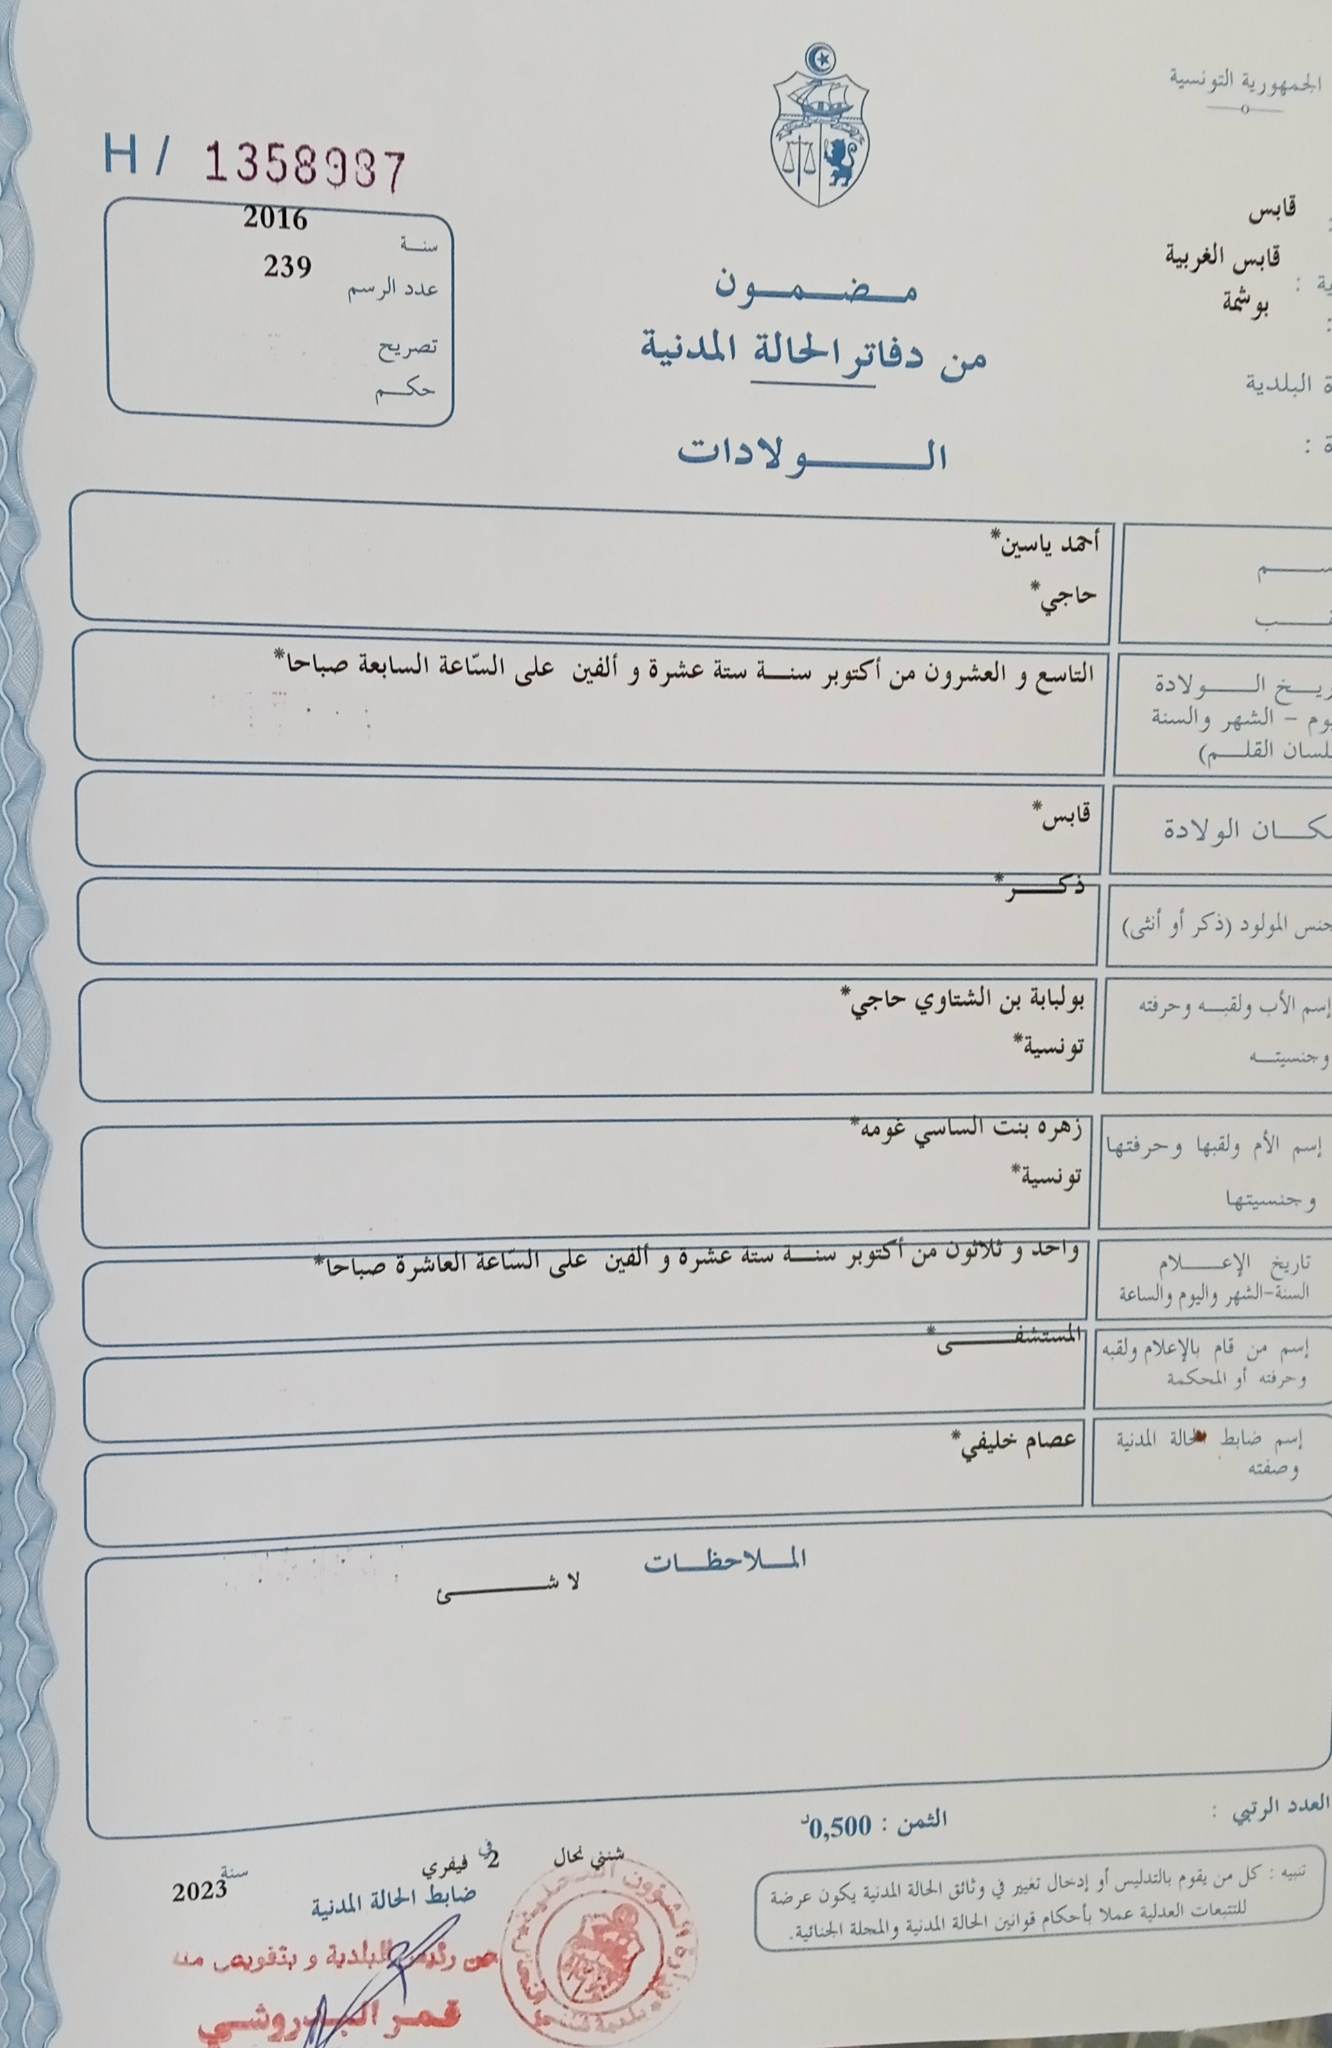 الجمهورية التونسية
H / 1358987
قابس
قابس الغربية
بوشمة
البلدية
سنة 2016
عدد الرسم 239
تصريح
حكم
مضمون
من دفاتر الحالة المدنية
الولادات
أحمد ياسين*
حاجي*
الولادة
التاسع و العشرون من أكتوبر سنة ستة عشرة و ألفين على السّاعة السابعة صباحا*
– الشهر والسنة
القلم)
الولادة
قابس*
ذكر*
المولود (ذكر أو أنثى)
إسم الأب ولقبه وحرفته
وجنسيته
بولبابة بن الشتاوي حاجي*
تونسية*
إسم الأم ولقبها وحرفتها
وجنسيتها
زهره بنت الساسي غومه*
تونسية*
تاريخ الإعلام
السنة-الشهر واليوم والساعة
واحد و ثلاثون من أكتوبر سنة ستة عشرة و ألفين على السّاعة العاشرة صباحا*
إسم من قام بالإعلام ولقبه
وحرفته أو المحكمة
المستشفى*
إسم ضابط الحالة المدنية
وصفته
عصام خليفي*
الملاحظات
لا شئ
العدد الرتبي :
الثمن : 0,500د
تنبيه : كل من يقوم بالتدليس أو إدخال تغيير في وثائق الحالة المدنية يكون عرضة
للتتبعات العدلية عملا بأحكام قوانين الحالة المدنية والمجلة الجنائية.
شنني نحال في 2 فيفري سنة 2023
ضابط الحالة المدنية
عن رئيس البلدية و بتفويض منه
قمر البدروشي